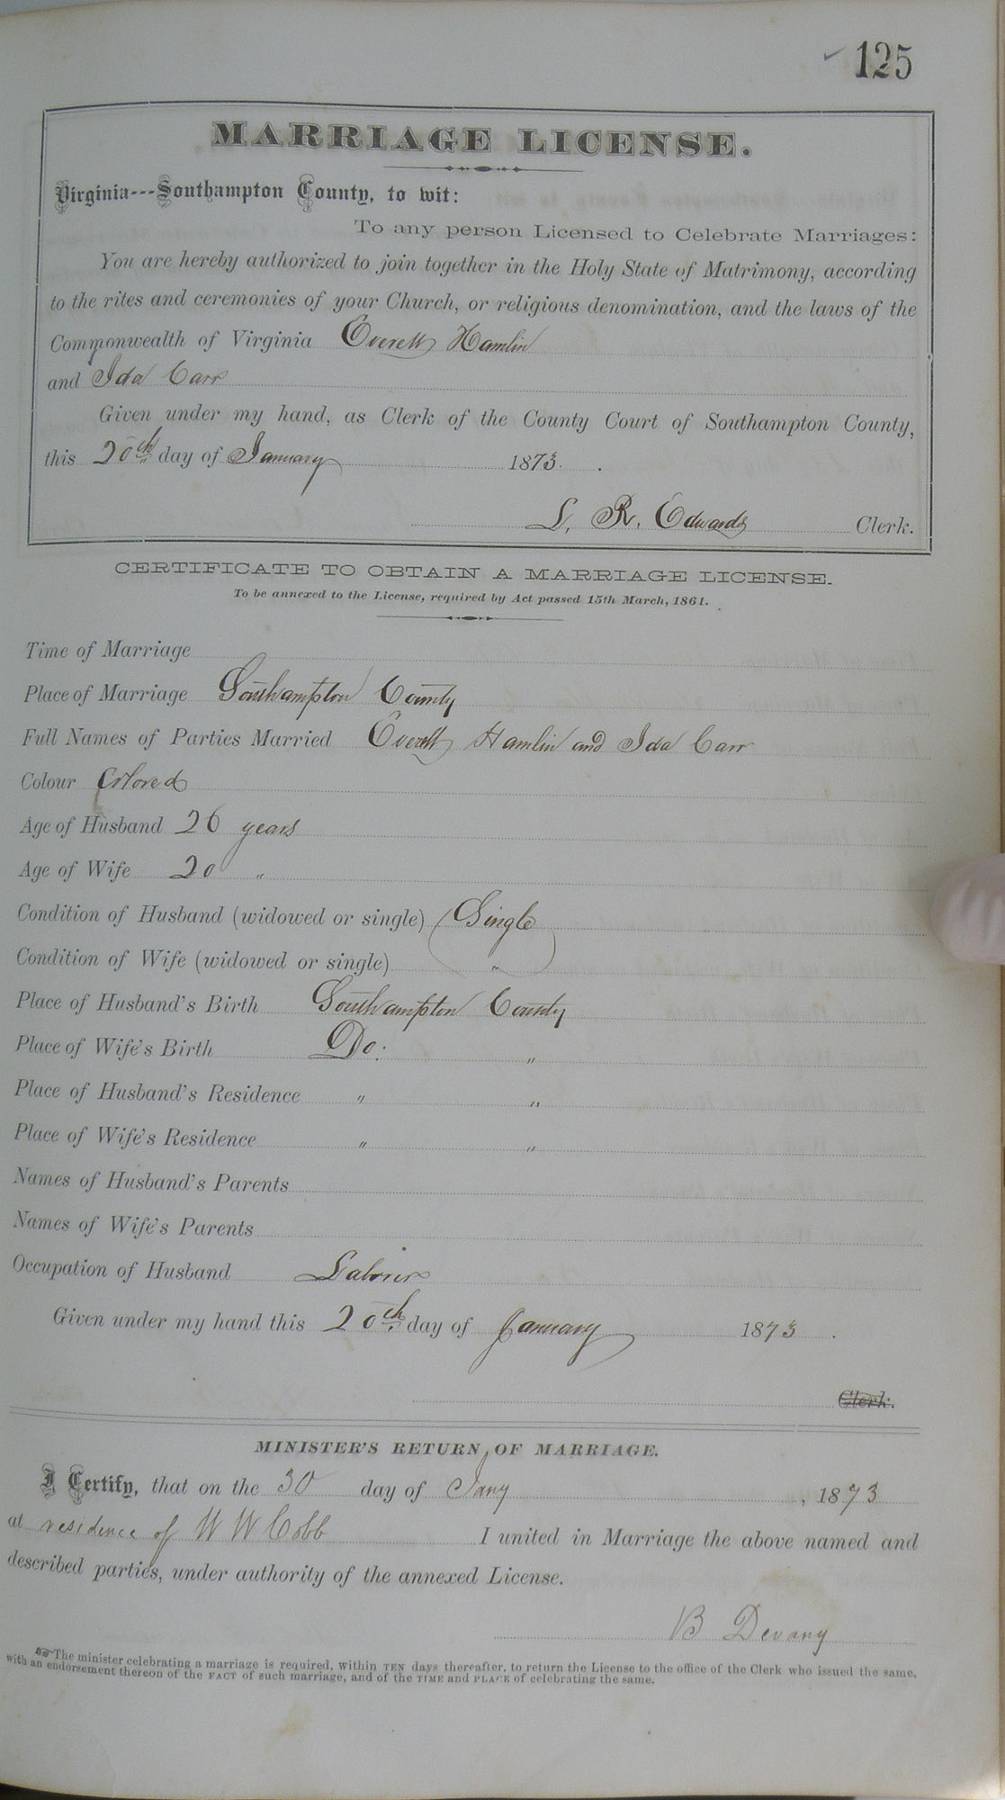 ✓ 125
MARRIAGE LICENSE.
Virginia---Southampton County, to wit:
To any person Licensed to Celebrate Marriages:
You are hereby authorized to join together in the Holy State of Matrimony, according
to the rites and ceremonies of your Church, or religious denomination, and the laws of the
Commonwealth of Virginia Everett Hamlin
and Ida Carr
Given under my hand, as Clerk of the County Court of Southampton County,
this 20th day of January 1873.
L. R. Edwards Clerk.
CERTIFICATE TO OBTAIN A MARRIAGE LICENSE.
To be annexed to the License, required by Act passed 15th March, 1861.
Time of Marriage
Place of Marriage Southampton County
Full Names of Parties Married Everett Hamlin and Ida Carr
Colour Colored
Age of Husband 26 years
Age of Wife 20 "
Condition of Husband (widowed or single) Single
Condition of Wife (widowed or single) "
Place of Husband's Birth Southampton County
Place of Wife's Birth Do. "
Place of Husband's Residence " "
Place of Wife's Residence " "
Names of Husband's Parents
Names of Wife's Parents
Occupation of Husband Laborer
Given under my hand this 20th day of January 1873.
Clerk.
MINISTER'S RETURN OF MARRIAGE.
I Certify, that on the 30 day of Jany, 1873
at residence of W W Cobb I united in Marriage the above named and
described parties, under authority of the annexed License.
B Devany
The minister celebrating a marriage is required, within TEN days thereafter, to return the License to the office of the Clerk who issued the same,
with an endorsement thereon of the FACT of such marriage, and of the TIME and PLACE of celebrating the same.